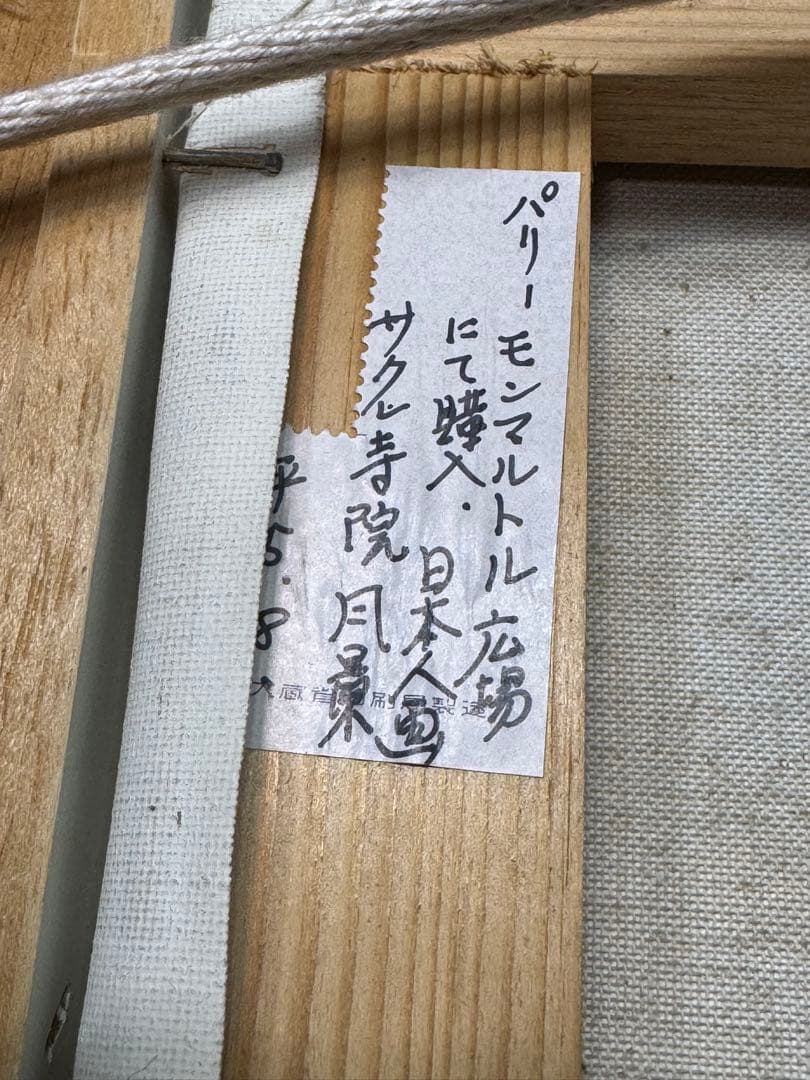 パリーモンマルトル広場
にて購入. 日本人画
サクレ寺院風景
平5.8
大蔵省印刷局製造